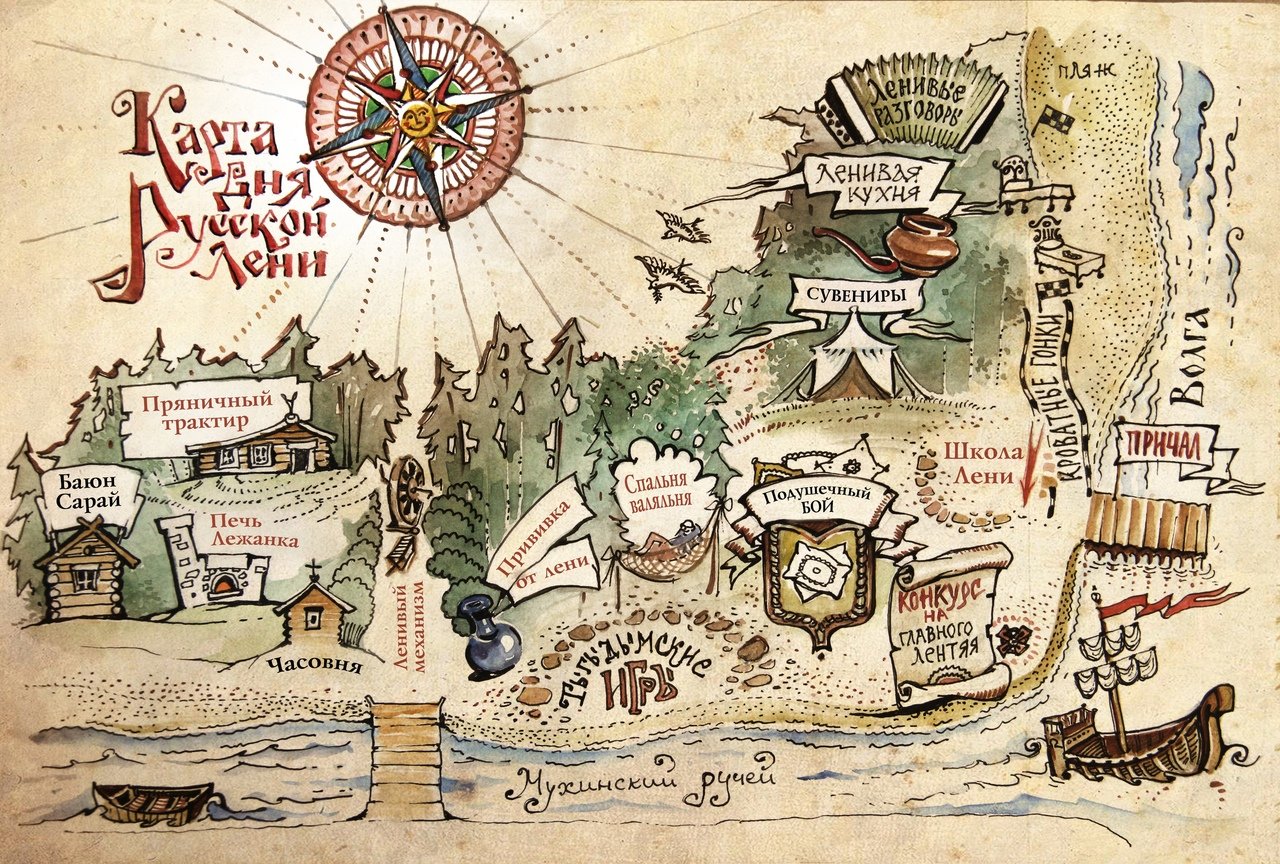 Карта
Дня
Русской
Лени
пляж
Ленивые
разговоры
Ленивая
кухня
Сувениры
Кроватные гонки
Волга
Причал
Школа
Лени
Пряничный
трактир
Баюн
Сарай
Печь
Лежанка
Часовня
Ленивый
механизм
Прививка
от лени
Спальня
валяльня
Подушечный
бой
Тыгыдымские
игры
Конкурс
на
главного
лентяя
Мухинский ручей